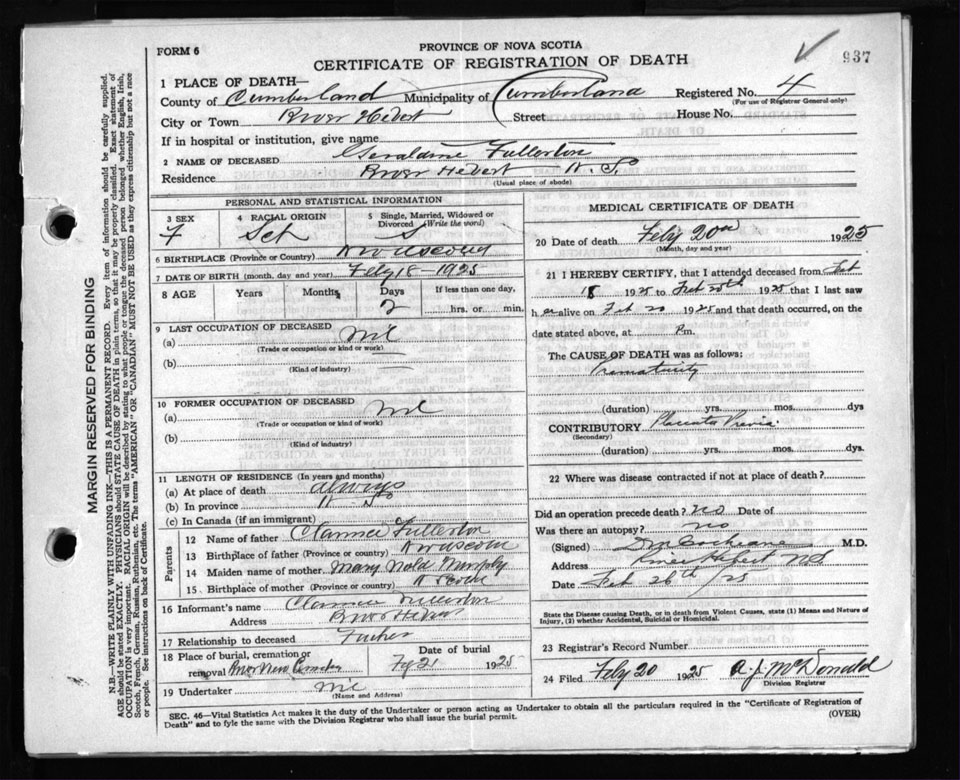 937
FORM 6
PROVINCE OF NOVA SCOTIA
CERTIFICATE OF REGISTRATION OF DEATH
1 PLACE OF DEATH—
County of Cumberland Municipality of Cumberland Registered No. 4
(For use of Registrar General only)
City or Town River Hebert Street House No.
If in hospital or institution, give name
2 NAME OF DECEASED Geraldine Fullerton
Residence River Hebert N. S.
(Usual place of abode)
PERSONAL AND STATISTICAL INFORMATION
3 SEX 4 RACIAL ORIGIN 5 Single, Married, Widowed or Divorced (Write the word)
F Sct S
6 BIRTHPLACE (Province or Country)
7 DATE OF BIRTH (month, day and year) Feby 18 - 1925
8 AGE Years Months Days If less than one day,
2 hrs. or min.
9 LAST OCCUPATION OF DECEASED
(a) Nil
(Trade or occupation or kind or work)
(b)
(Kind of industry)
10 FORMER OCCUPATION OF DECEASED
(a) Nil
(Trade or occupation or kind of work)
(b)
(Kind of industry)
11 LENGTH OF RESIDENCE (In years and months)
(a) At place of death always
(b) In province N S
(c) In Canada (if an immigrant)
Parents
12 Name of father Clarence Fullerton
13 Birthplace of father (Province or country)
14 Maiden name of mother Mary Murphy
15 Birthplace of mother (Province or country)
16 Informant's name Clarence Fullerton
Address River Hebert
17 Relationship to deceased Father
18 Place of burial, cremation or removal River View Cemetery Date of burial 21 1925
19 Undertaker Nil
(Name and Address)
MEDICAL CERTIFICATE OF DEATH
20 Date of death Feby 20th 1925
(Month, day and year)
21 I HEREBY CERTIFY, that I attended deceased from Feb
18 1925 to Feb 20th 1925 that I last saw
h er alive on Feb 20 1925 and that death occurred, on the
date stated above, at Pm.
The CAUSE OF DEATH was as follows:
Prematurity
(duration) yrs. mos. dys
CONTRIBUTORY Placenta Previa
(Secondary)
(duration) yrs. mos. dys.
22 Where was disease contracted if not at place of death?
Did an operation precede death? no Date of
Was there an autopsy? no
(Signed) Cochrane M.D.
Address River Hebert N.S.
Date Feb 26th /25
State the Disease causing Death, or in death from Violent Causes, state (1) Means and Nature of
Injury, (2) whether Accidental, Suicidal or Homicidal.
23 Registrar's Record Number
24 Filed Feby 20 1925 A. J. McDonald
Division Registrar
SEC. 46—Vital Statistics Act makes it the duty of the Undertaker or person acting as Undertaker to obtain all the particulars required in the "Certificate of Registration of
Death" and to fyle the same with the Division Registrar who shall issue the burial permit.
(OVER)
MARGIN RESERVED FOR BINDING
N.B.—WRITE PLAINLY WITH UNFADING INK—THIS IS A PERMANENT RECORD. Every item of information should be carefully supplied.
AGE should be stated EXACTLY. PHYSICIANS should STATE CAUSE OF DEATH in plain terms, so that it may be properly classified. Exact statement of
OCCUPATION is very important. RACIAL ORIGIN will be described by stating to what people or tongue the deceased person belonged whether English, Irish,
Scotch, French, German, Russian, Ruthenian, etc. The terms "AMERICAN" OR "CANADIAN" MUST NOT BE USED as they express citizenship but not a race
or people. See instructions on back of Certificate.